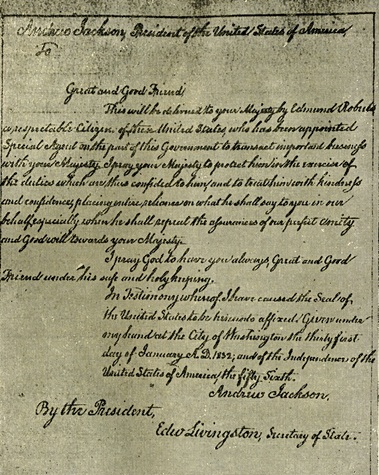 Andrew Jackson, President of the United States of America,
To
Great and Good Friend,
This will be delivered to your Majesty by Edmund Roberts
a respectable Citizen of these United States who has been appointed
Special Agent on the part of this Government to transact important business
with your Majesty. I pray your Majesty to protect him in the exercise of
the duties which are thus confided to him, and to treat him with kindness
and confidence, placing entire reliance on what he shall say to you in our
behalf, especially when he shall repeat the assurances of our perfect amity
and Good will towards your Majesty.
I pray God to have you always Great and Good
Friend under his safe and holy keeping.
In Testimony whereof I have caused the Seal of
the United States to be hereunto affixed. Given under
my hand at the City of Washington the thirty first
day of January A.D. 1832, and of the Independence of the
United States of America, the fifty Sixth.
Andrew Jackson.
By the President,
Edw Livingston, Secretary of State.